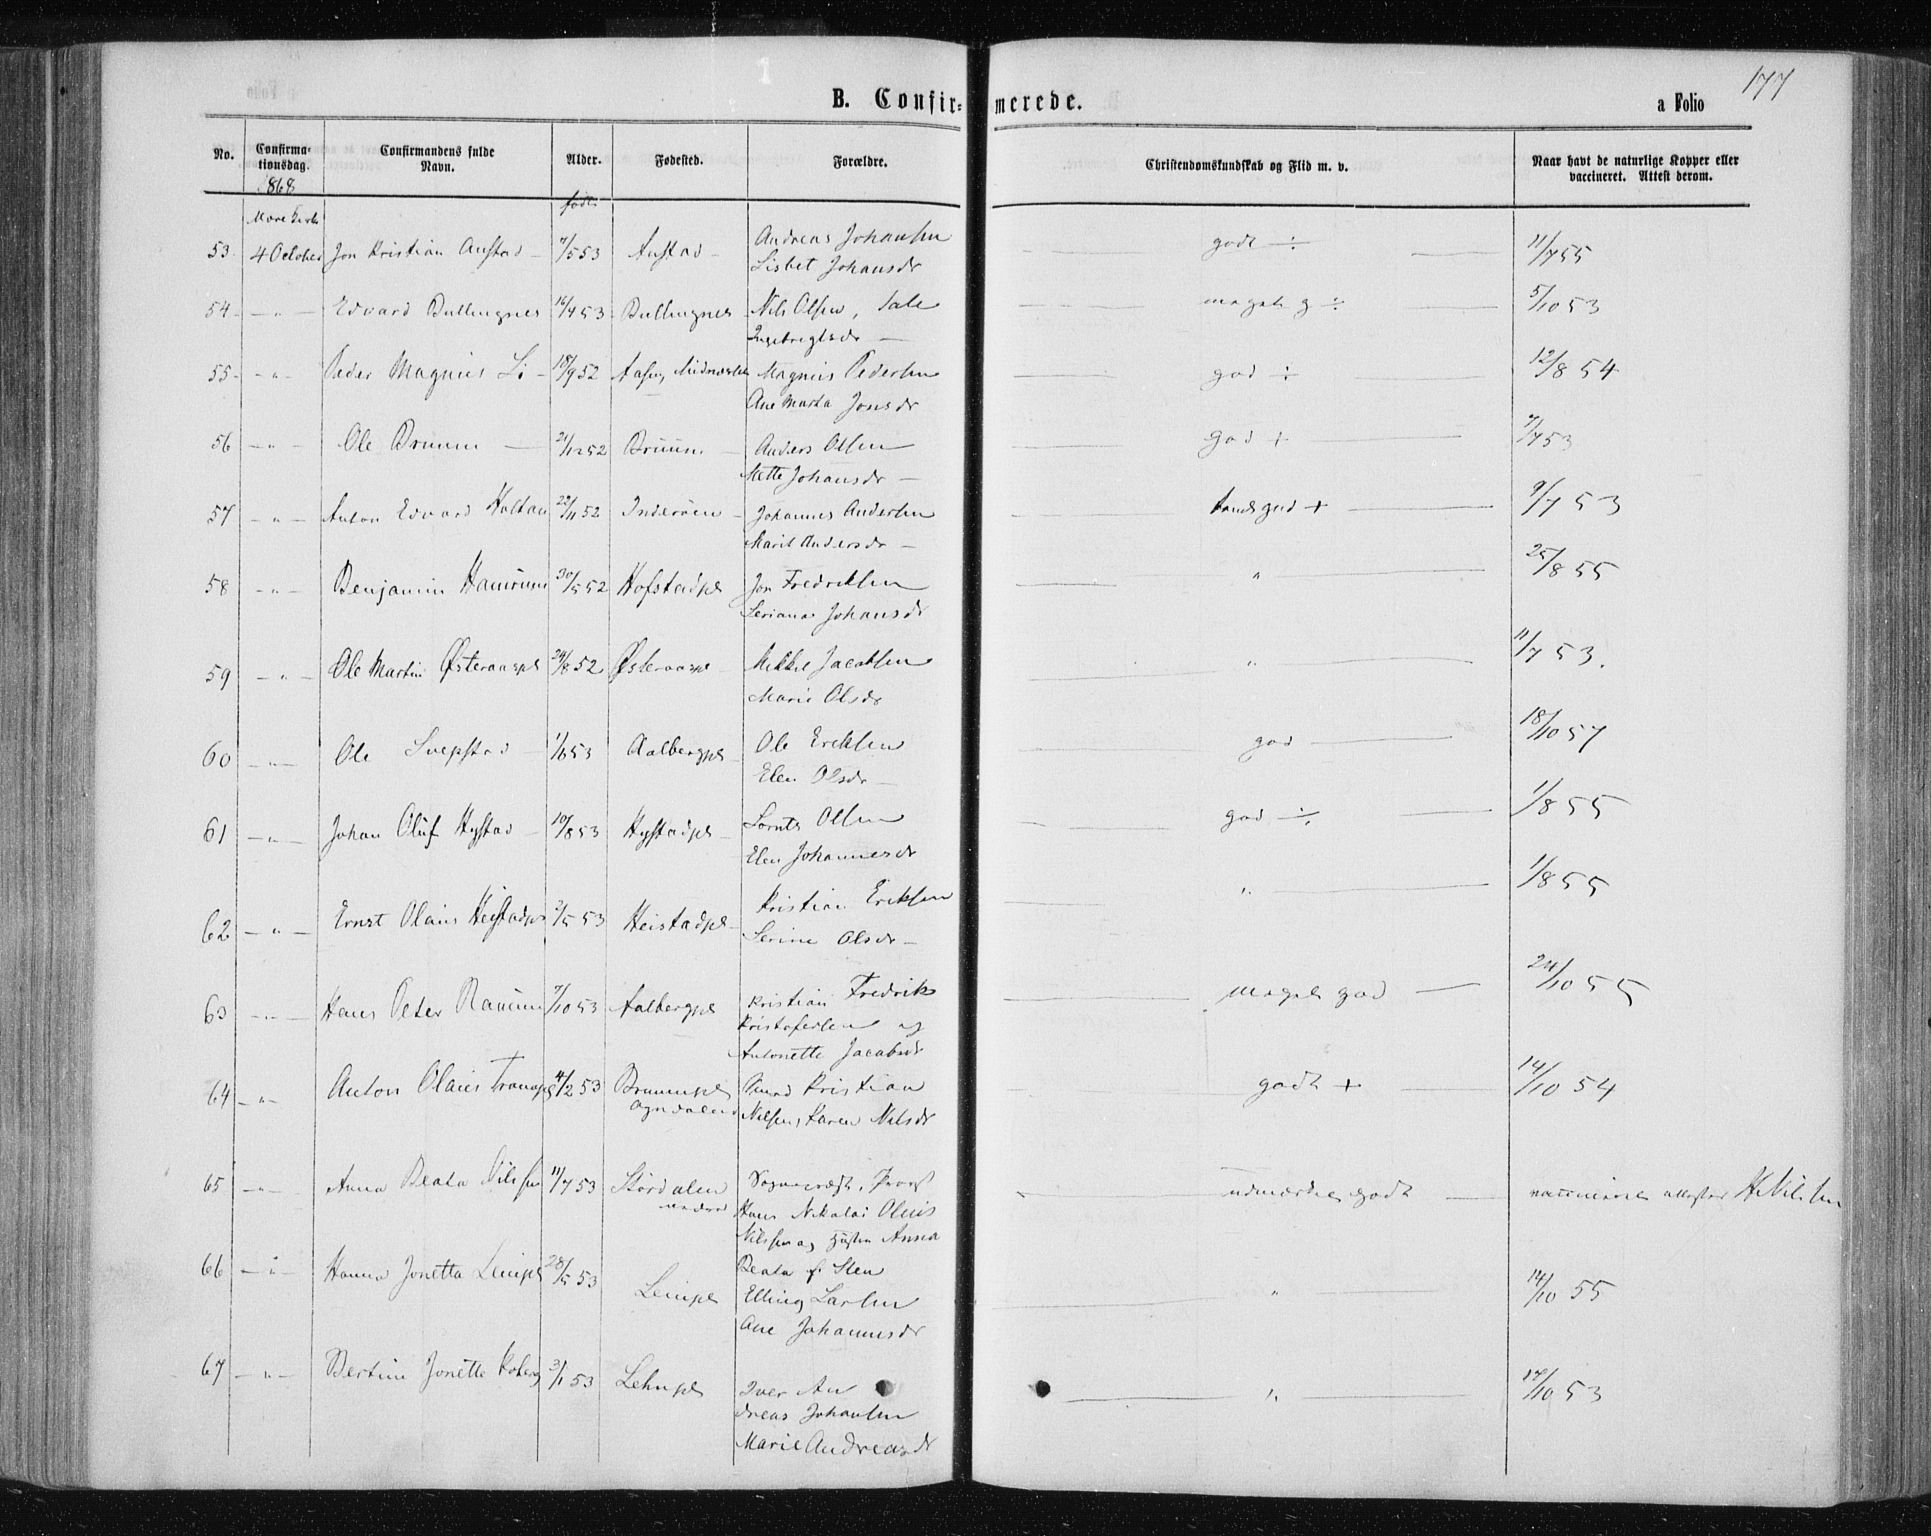 177
B. Confir- merede.
a Folio
No.
Confirmationsdag.
Confirmandens fulde Navn.
Alder.
Fødested.
Forældre.
Christendomskundskab og Flid m. v.
Naar havt de naturlige Kopper eller vaccineret. Attest derom.
1868
født
53 4 October Jon Kristian Austad 7/5 53 Austad Andreas Johansen godt ÷ 11/7 55
Lisbet Johansdr
54 - " - Edvard Bullingnes 16/4 53 Bullingnes Nils Olsen, meget g ÷ 5/10 53
Ingebregtsdr
55 - " - Peder Magnus Li 18/9 52 Aasen, Magnus Pedersen god ÷ 12/8 54
Ane Marta Jonsdr
56 - " - Ole Bruum 21/12 52 Bruum Anders Olsen god + 7/7 53
Mette Johansdr
57 - " - Anton Edvard Holtan 22/11 52 Inderøen Johannes Andersen god + 9/7 53
Marit Andersdr
58 - " - Benjamin Hamrum 30/5 52 Hofstadpl Jon Fredriksen " 25/8 55
Seriana Johansdr
59 - " - Ole Martin Østeraaspl 24/8 52 Østeraaspl Mikkel Jacobsen " 11/7 53.
Marie Olsdr
60 - " - Ole 53 Aalbergpl Ole Eriksen god 18/10 57
Elen Olsdr
61 - " - Johan Oluf Hystad 10/8 53 Hystadpl Lornts Olsen god ÷ 1/8 55
Elen Johannesdr
62 - " - Ernst Olaus Heistadpl 2/5 53 Heistadpl Kristian Eriksen " 1/8 55
Serine Olsdr
63 - " - Hans Peter Ramum 7/10 53 Aalbergpl Kristian Fredrik meget god 24/10 55
Kristofersen og
Antonette Jacobsdr
64 - " - Anton Olaus 4/2 53 Bruumpl Kristian godt + 14/10 54
Ogndalen Nilsen, Karen Nilsdr
65 - " - Anna Beata Nilsen 11/7 53 Størdalen Sogneprest, Provst udmærket godt vaccineret attesterer HNilsen
nedre Hans Nikolai Olius
Nilsen og Hustru Anna
Beata f. Steen
66 - " - Hanna Jonetta Leinpl 28/5 53 Leinpl Elling Larsen " 14/10 55
Ane Johannesdr
67 - " - Bertine Jonette 3/1 53 Lehnpl Iver An- " 17/10 53
dreas Johansen
Marie Andreasdr